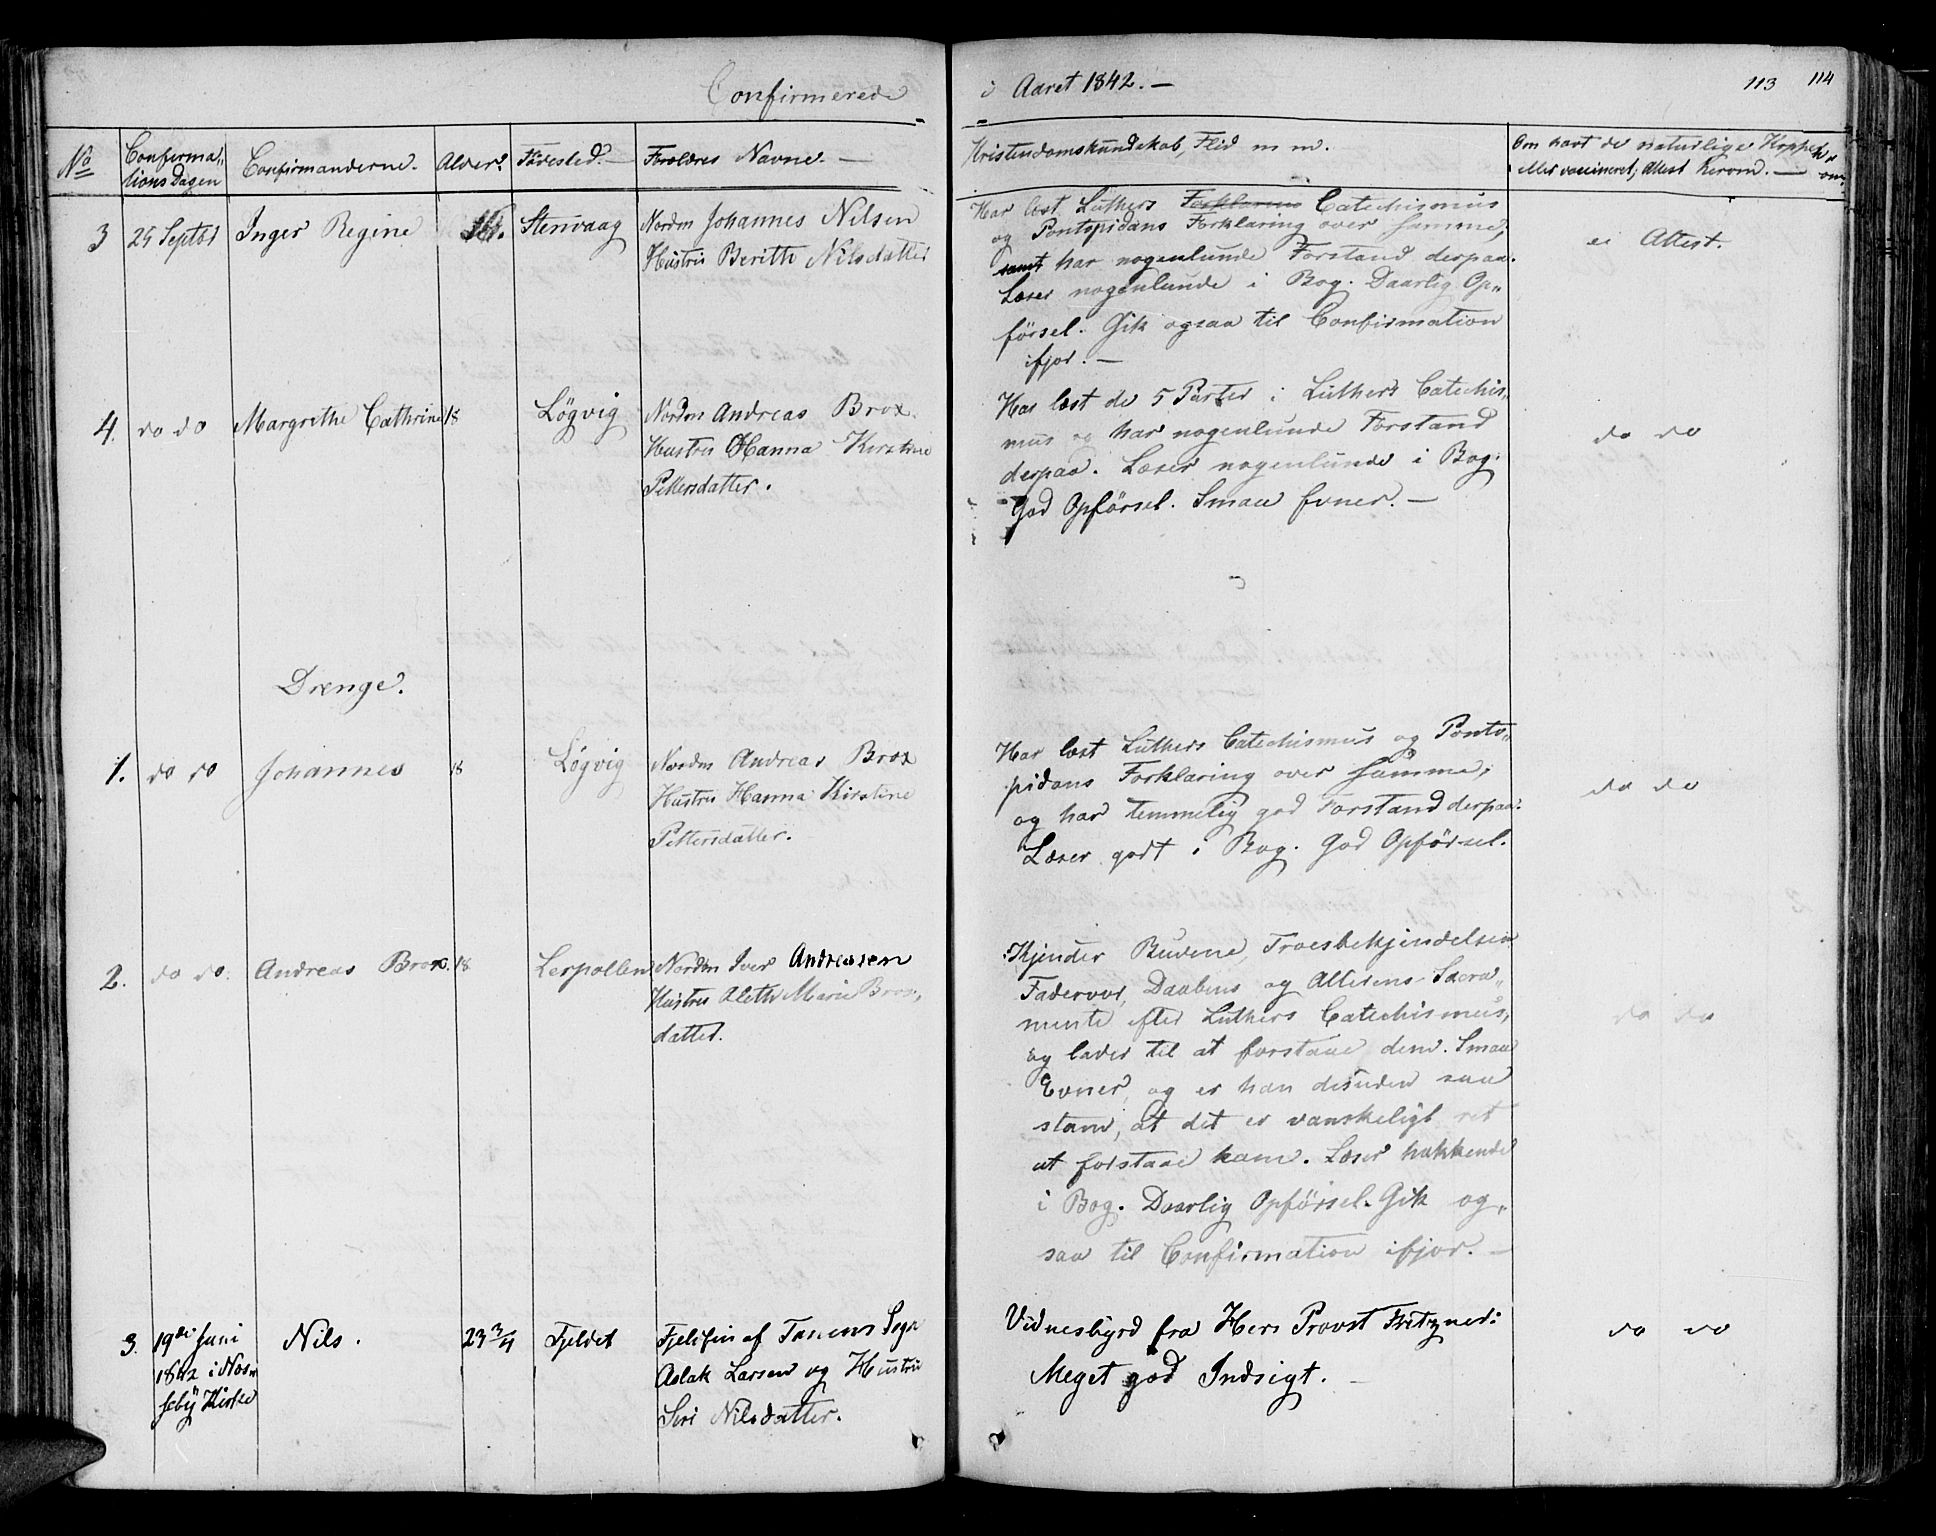 Confirmerede
i Aaret 1842. —
113 114
No
Confirma„
tions Dagen
Confirmanderne.
Alder.
Fødested. —
Forældres Navne. —
Kristendomskundskab, Flid m m.
Om havt de naturlige Kopper
eller vaccineret; Attest herom. —
3
25 Septbr
Inger Regine
Stenvaag
Nordm Johannes Nilsen
Hustru Berithe Nilsdatter
Har læst Luthers Forklaring Catechismus
og Pontopidans Forklaring over samme,
samt har nogenlunde Forstand derpaa.
Læser nogenlunde i Bog. Daarlig Op„
førsel. Gik ogsaa til Confirmation
ifjor. —
ei Attest.
4.
do do
Margrethe Cathrine
18
Løgvig
Nordm Andreas Brox.
Hustru Hanna Kirstine
Pettersdatter.
Har læst de 5 Parter i Luthers Catechis„
mus og har nogenlunde Forstand
derpaa. Læser nogenlunde i Bog.
God Opførsel. Smaa Evner. —
do do
Drenge.
1.
do do
Johannes
18
Løgvig
Nordm Andreas Brox
Hustru Hanna Kirstine
Pettersdatter.
Har læst Luthers Catechismus og Ponto„
pidans Forklaring over samme,
og har temmelig god Forstand derpaa.
Læser godt i Bog. God Opførsel.
do do
2.
do do.
Andreas Brox.
18
Lerpollen
Nordm Iver Andreasen
Hustru Aleth Marie Brox„
datter.
Kjender Budene, Troesbekjendelsen
Fadervor, Daabens og Alterens Sacra„
mente efter Luthers Catechismus,
og lader til at forstaae dem. Smaa
Evner, og er han desuden saa
stam, at det er vanskeligt ret
at forstaae ham. Læser hakkende
i Bog. Daarlig Opførsel. Gik og„
saa til Confirmation ifjor. —
do do
3.
19de Juni
1842 i Næs„
seby Kirke
Nils.
23 3/4
Fjeldet
Fjelfin af Tanens Sogn
Aslak Larsen og Hustru
Siri Nilsdatter.
Vidnesbyrd fra Herr Provst Fritzner:
Meget god Indsigt. —
do do